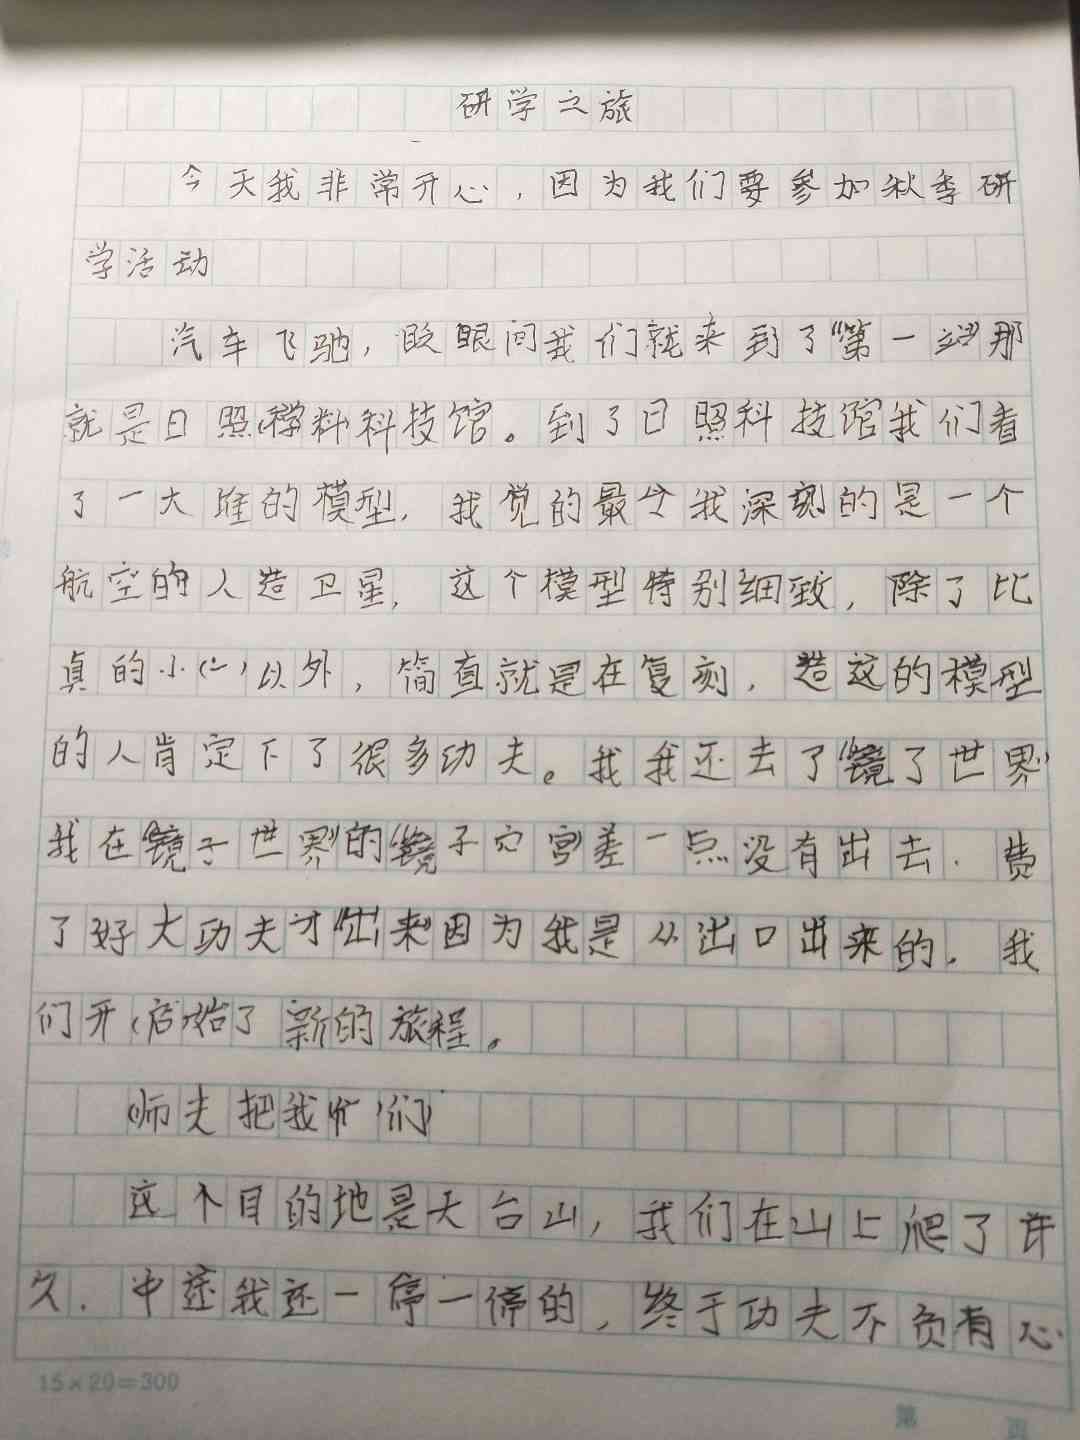 研学之旅
今天我非常开心，因为我们要参加秋季研
学活动
汽车飞驰，眨眼间我们就来到了“第一站”那
就是日照(学料)科技馆。到了日照科技馆我们看
了一大堆的模型，我觉的最令我深刻的是一个
航空的人造卫星，这个模型特别细致，除了比
真的小(一)以外，简直就是在复刻，造这的模型
的人肯定下了很多功夫。我我还去了“镜了世界”
我在“镜子世界”的“镜子穴宫差一点没有出去．费
了好大功夫才“出来”因为我是从出口出来的．我
们开(启)始了新的旅程。
(师夫把我忙们)
这个目的地是天台山，我们在山上爬了许
久．中途我还一停一停的，终于功夫不负有心
15×20=300
第 页